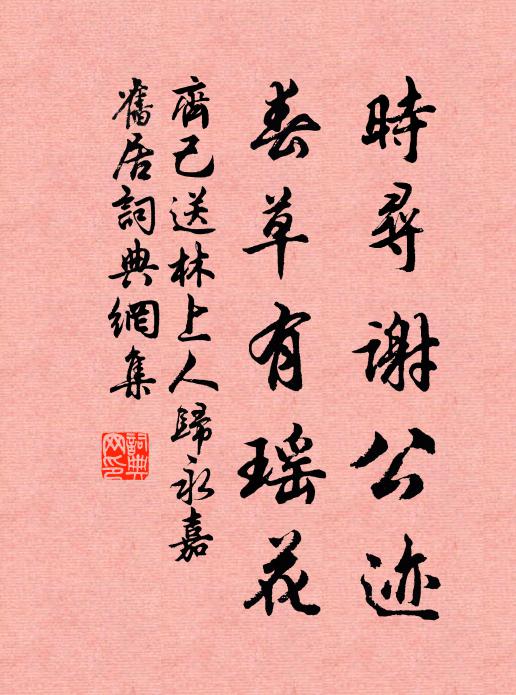 時尋謝公迹
春草有瑶花
齊己送林上人歸永嘉
舊居詞典網集
詞典网印